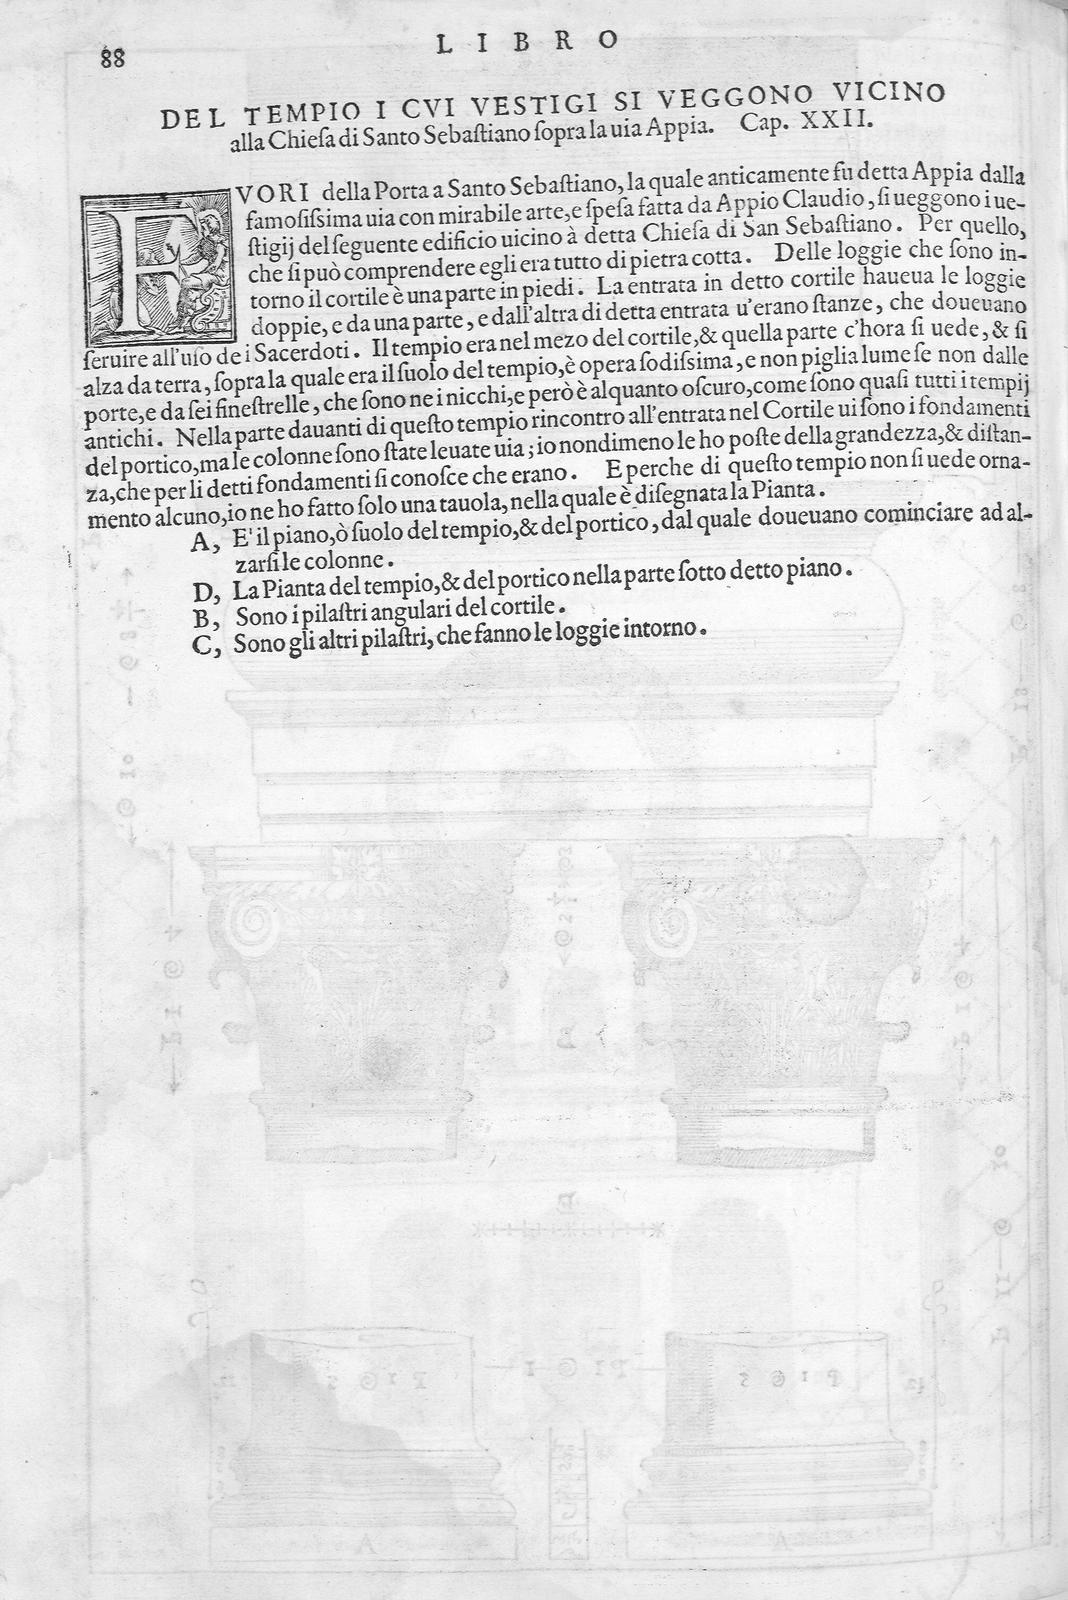 88
LIBRO
DEL TEMPIO I CVI VESTIGI SI VEGGONO VICINO
alla Chieſa di Santo Sebaſtiano ſopra la uia Appia. Cap. XXII.
FVORI della Porta a Santo Sebaſtiano, la quale anticamente fu detta Appia dalla
famoſiſsima uia con mirabile arte, e ſpeſa fatta da Appio Claudio, ſi ueggono i ue-
ſtigij del ſeguente edificio uicino à detta Chieſa di San Sebaſtiano. Per quello,
che ſi può comprendere egli era tutto di pietra cotta. Delle loggie che ſono in-
torno il cortile è una parte in piedi. La entrata in detto cortile haueua le loggie
doppie, e da una parte, e dall'altra di detta entrata u'erano ſtanze, che doueuano
ſeruire all'uſo de i Sacerdoti. Il tempio era nel mezo del cortile, & quella parte c'hora ſi uede, & ſi
alza da terra, ſopra la quale era il ſuolo del tempio, è opera ſodiſsima, e non piglia lume ſe non dalle
porte, e da ſei fineſtrelle, che ſono ne i nicchi, e però è alquanto oſcuro, come ſono quaſi tutti i tempij
antichi. Nella parte dauanti di queſto tempio rincontro all'entrata nel Cortile ui ſono i fondamenti
del portico, ma le colonne ſono ſtate leuate uia; io nondimeno le ho poſte della grandezza, & diſtan-
za, che per li detti fondamenti ſi conoſce che erano. E perche di queſto tempio non ſi uede orna-
mento alcuno, io ne ho fatto ſolo una tauola, nella quale è diſegnata la Pianta.
A, E' il piano, ò ſuolo del tempio, & del portico, dal quale doueuano cominciare ad al-
zarſi le colonne.
D, La Pianta del tempio, & del portico nella parte ſotto detto piano.
B, Sono i pilaſtri angulari del cortile.
C, Sono gli altri pilaſtri, che fanno le loggie intorno.